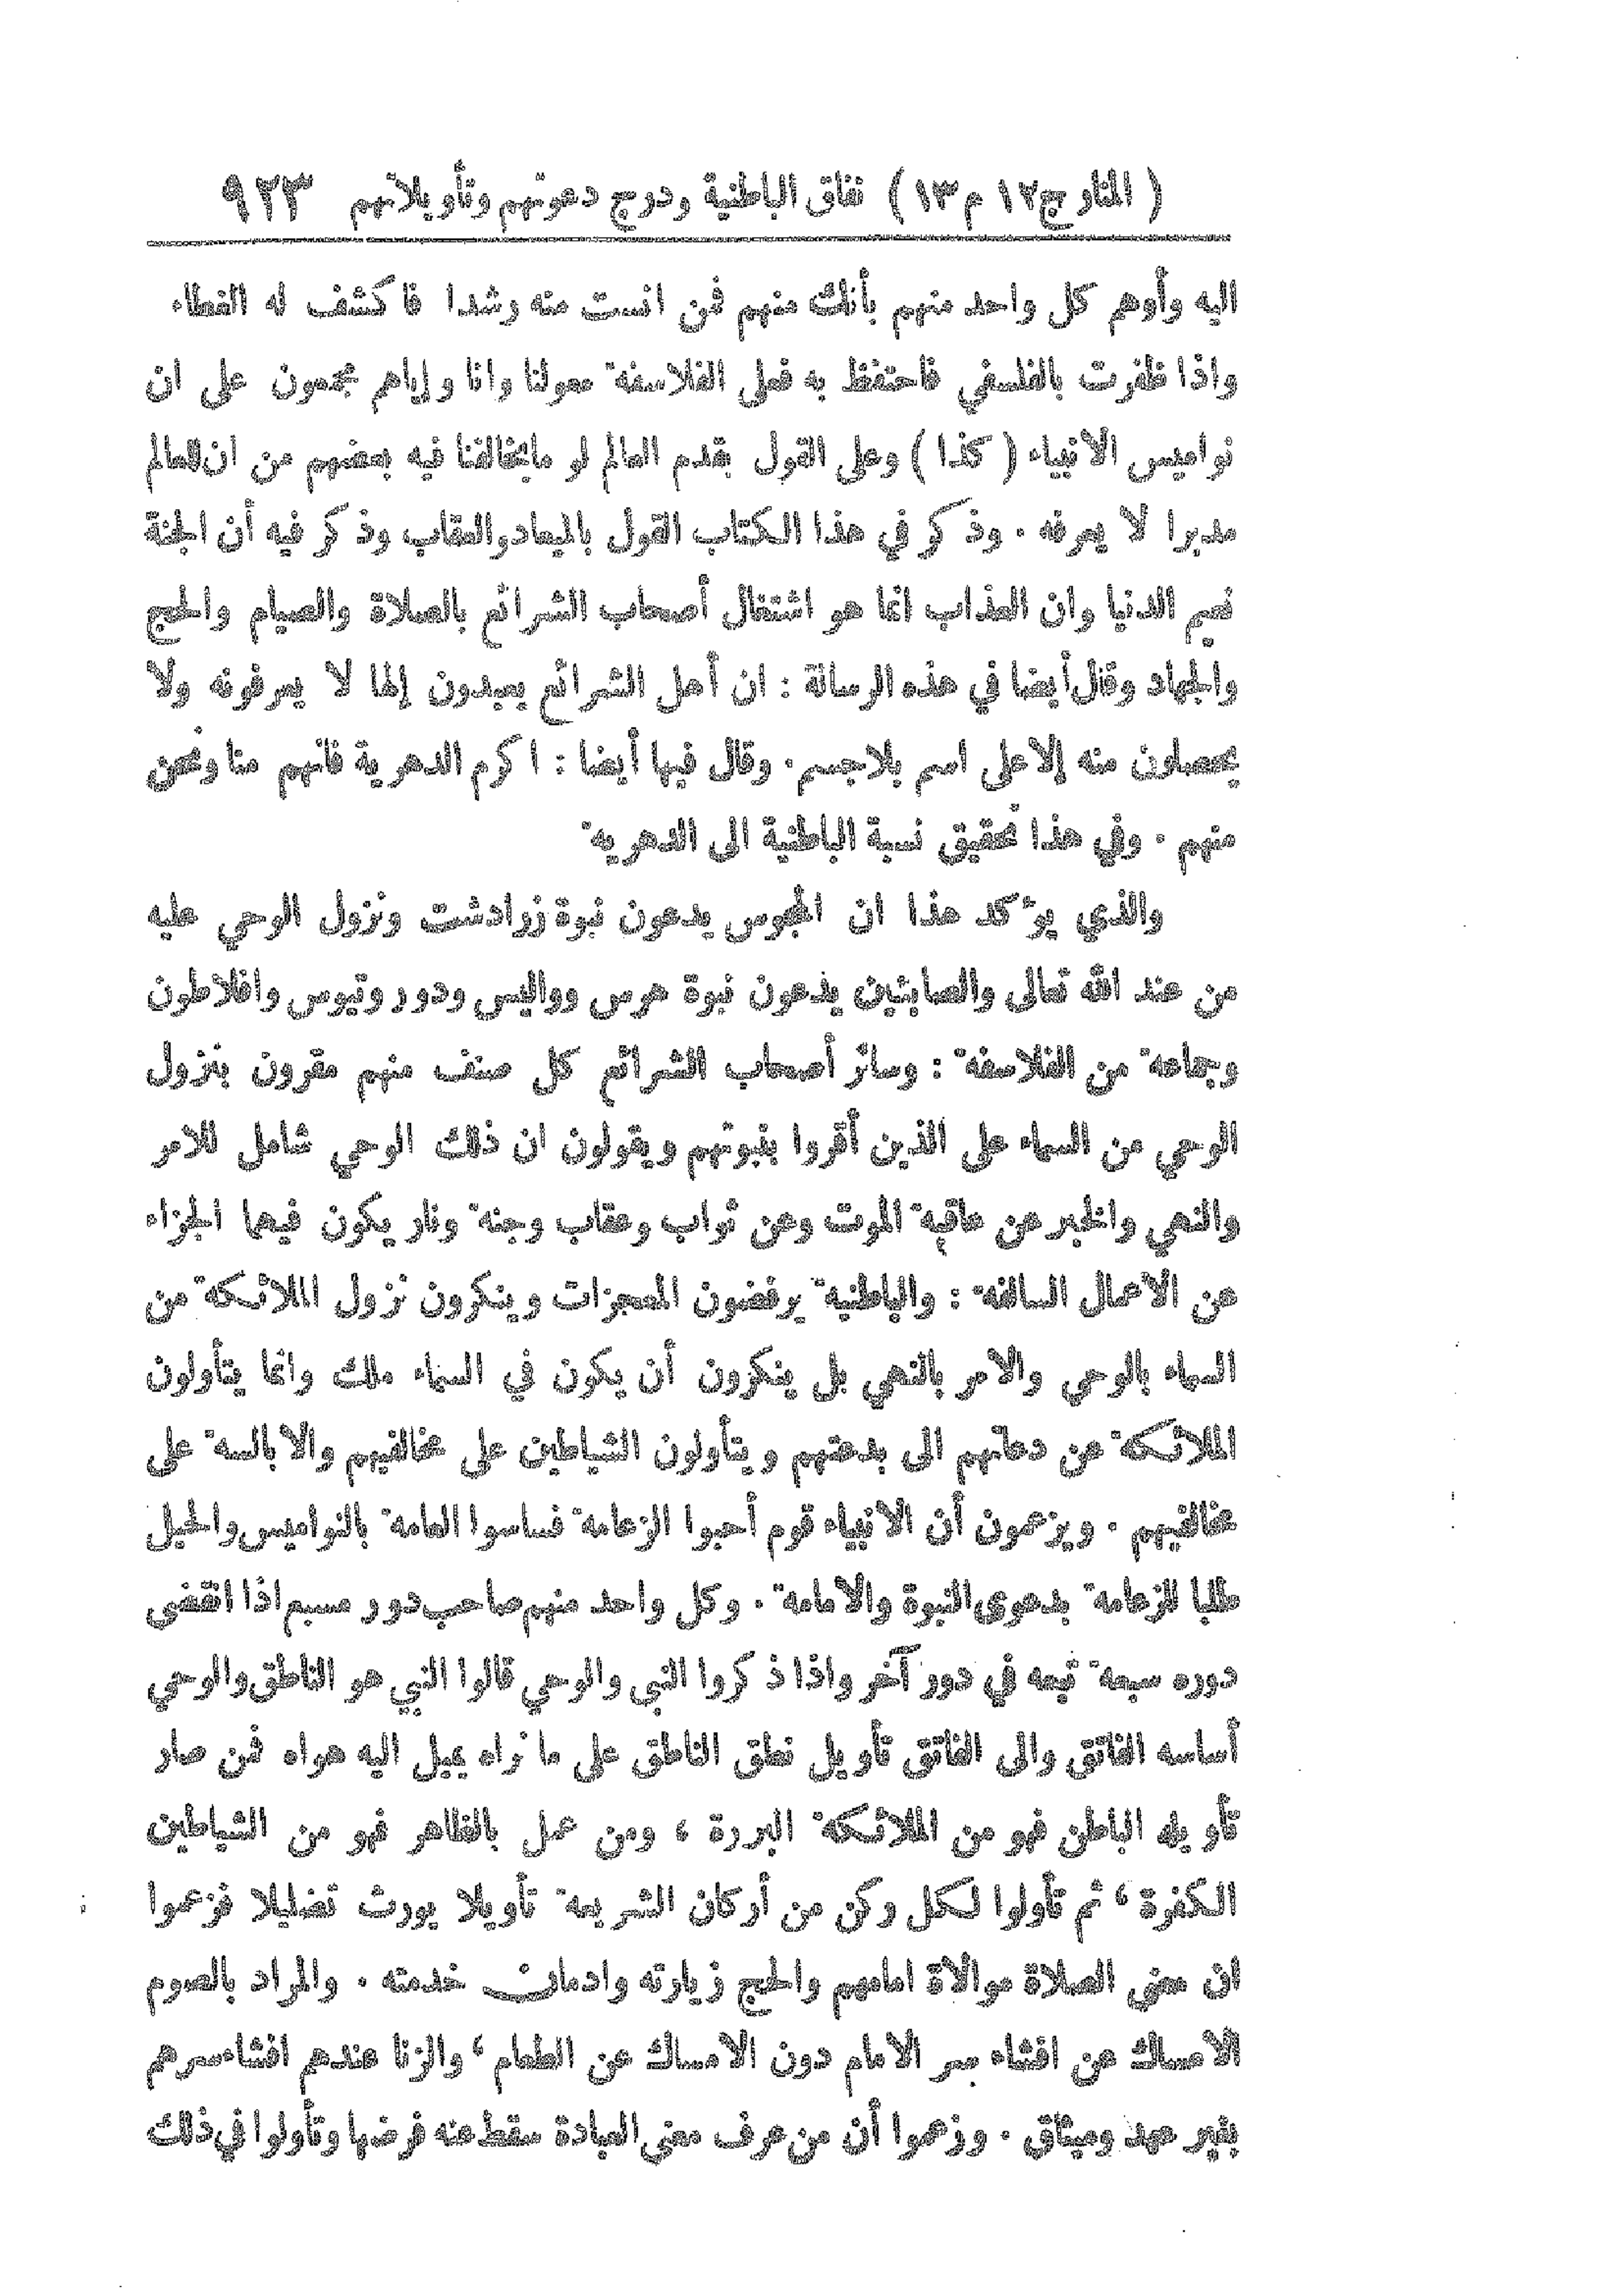 ( المنار ج١٢ م ١٣ ) نفاق الباطنية ودرج دعوتهم وتأويلاتهم ٩٢٣
اليه وأوهم كل واحد منهم بأنك منهم فمن انست منه رشدا فاكشف له الغطاء
واذا ظفرت بالفلسفي فاحتفظ به فعلى الفلاسفة معولنا وانا وإياهم مجمعون على ان
نواميس الانبياء ( كذا ) وعلى القول بقدم العالم لو ما يخالفنا فيه بعضهم من ان للعالم
مدبرا لا يعرفه . وذكر في هذا الكتاب القول بالميعاد والعقاب وذكر فيه أن الجنة
نعيم الدنيا وان العذاب انما هو اشتغال أصحاب الشرائع بالصلاة والصيام والحج
والجهاد وقال أيضا في هذه الرسالة : ان أهل الشرائع يعبدون إلها لا يعرفونه ولا
يحصلون منه إلا على اسم بلا جسم . وقال فيها أيضا : اكرم الدهرية فانهم منا ونحن
منهم . وفي هذا تحقيق نسبة الباطنية الى الدهرية
والذي يؤكد هذا ان المجوس يدعون نبوة زرادشت ونزول الوحي عليه
من عند الله تعالى والصابئين يدعون نبوة هرمس وواليس ودوروتيوس وافلاطون
وجماعة من الفلاسفة : وسائر أصحاب الشرائع كل صنف منهم مقرون بنزول
الوحي من السماء على الذين أقروا بنبوتهم ويقولون ان ذلك الوحي شامل للامر
والنهي والخبر عن عاقبة الموت وعن ثواب وعقاب وجنة ونار يكون فيهما الجزاء
عن الاعمال السالفة : والباطنية يرفضون المعجزات وينكرون نزول الملائكة من
السماء بالوحي والامر بالنهي بل ينكرون أن يكون في السماء ملك وانما يتأولون
الملائكة عن دعاتهم الى بدعتهم ويتأولون الشياطين على مخالفيهم والابالسة على
مخالفيهم . ويزعمون أن الانبياء قوم أحبوا الزعامة فساسوا العامة بالنواميس والحيل
طلبا للزعامة بدعوى النبوة والامامة . وكل واحد منهم صاحب دور مسبع اذا انقضى
دوره سبعة تبعه في دور آخر واذا ذكروا النبي والوحي قالوا النبي هو الناطق والوحي
أساسه الفاتق والى الفاتق تأويل نطق الناطق على ما نراه يميل اليه هواه فمن صار
تأويله الباطن فهو من الملائكة البررة ، ومن عمل بالظاهر فهو من الشياطين
الكفرة ، ثم تأولوا لكل ركن من أركان الشريعة تأويلا يورث تضليلا فزعموا
ان معنى الصلاة موالاة امامهم والحج زيارته وادمان خدمته . والمراد بالصوم
الامساك عن افشاء سر الامام دون الامساك عن الطعام ، والزنا عندهم افشاء سرهم
بغير عهد وميثاق . وزعموا أن من عرف معنى العبادة سقط عنه فرضها وتأولوا في ذلك